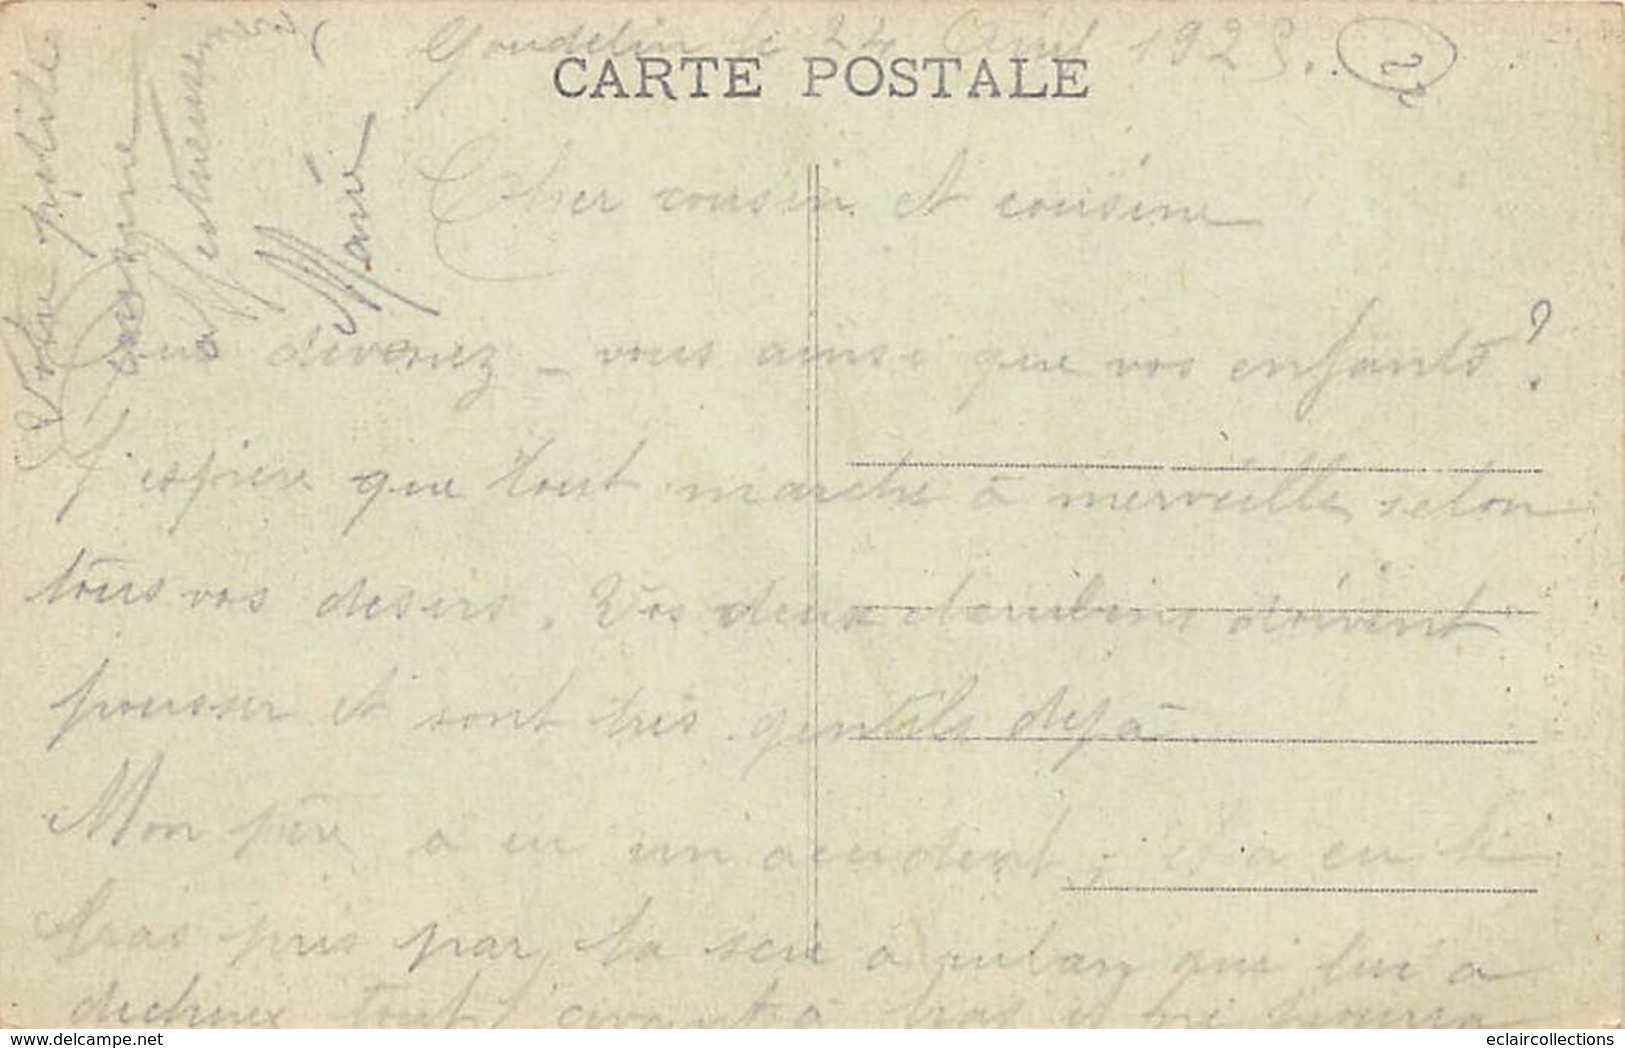 Goudelin le 24 Août 1923.
22
CARTE POSTALE
Cher cousin et cousine
Que devenez-vous ainsi que vos enfants?
J'espère que tout marche à merveille selon
tous vos désirs. Vos deux chérubins doivent
pousser et sont très gentils déjà.
Mon père a eu un accident, il a eu le
bras pris par la scie à ruban qui lui a
déchiré tout l'avant-bras il ne pourra
Votre petite
cousine
affectueusement
Marie
eclaircollections